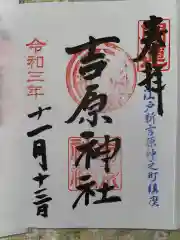 奉拝
江戸新吉原神之町鎮座
吉原神社
令和三年
十一月十三日